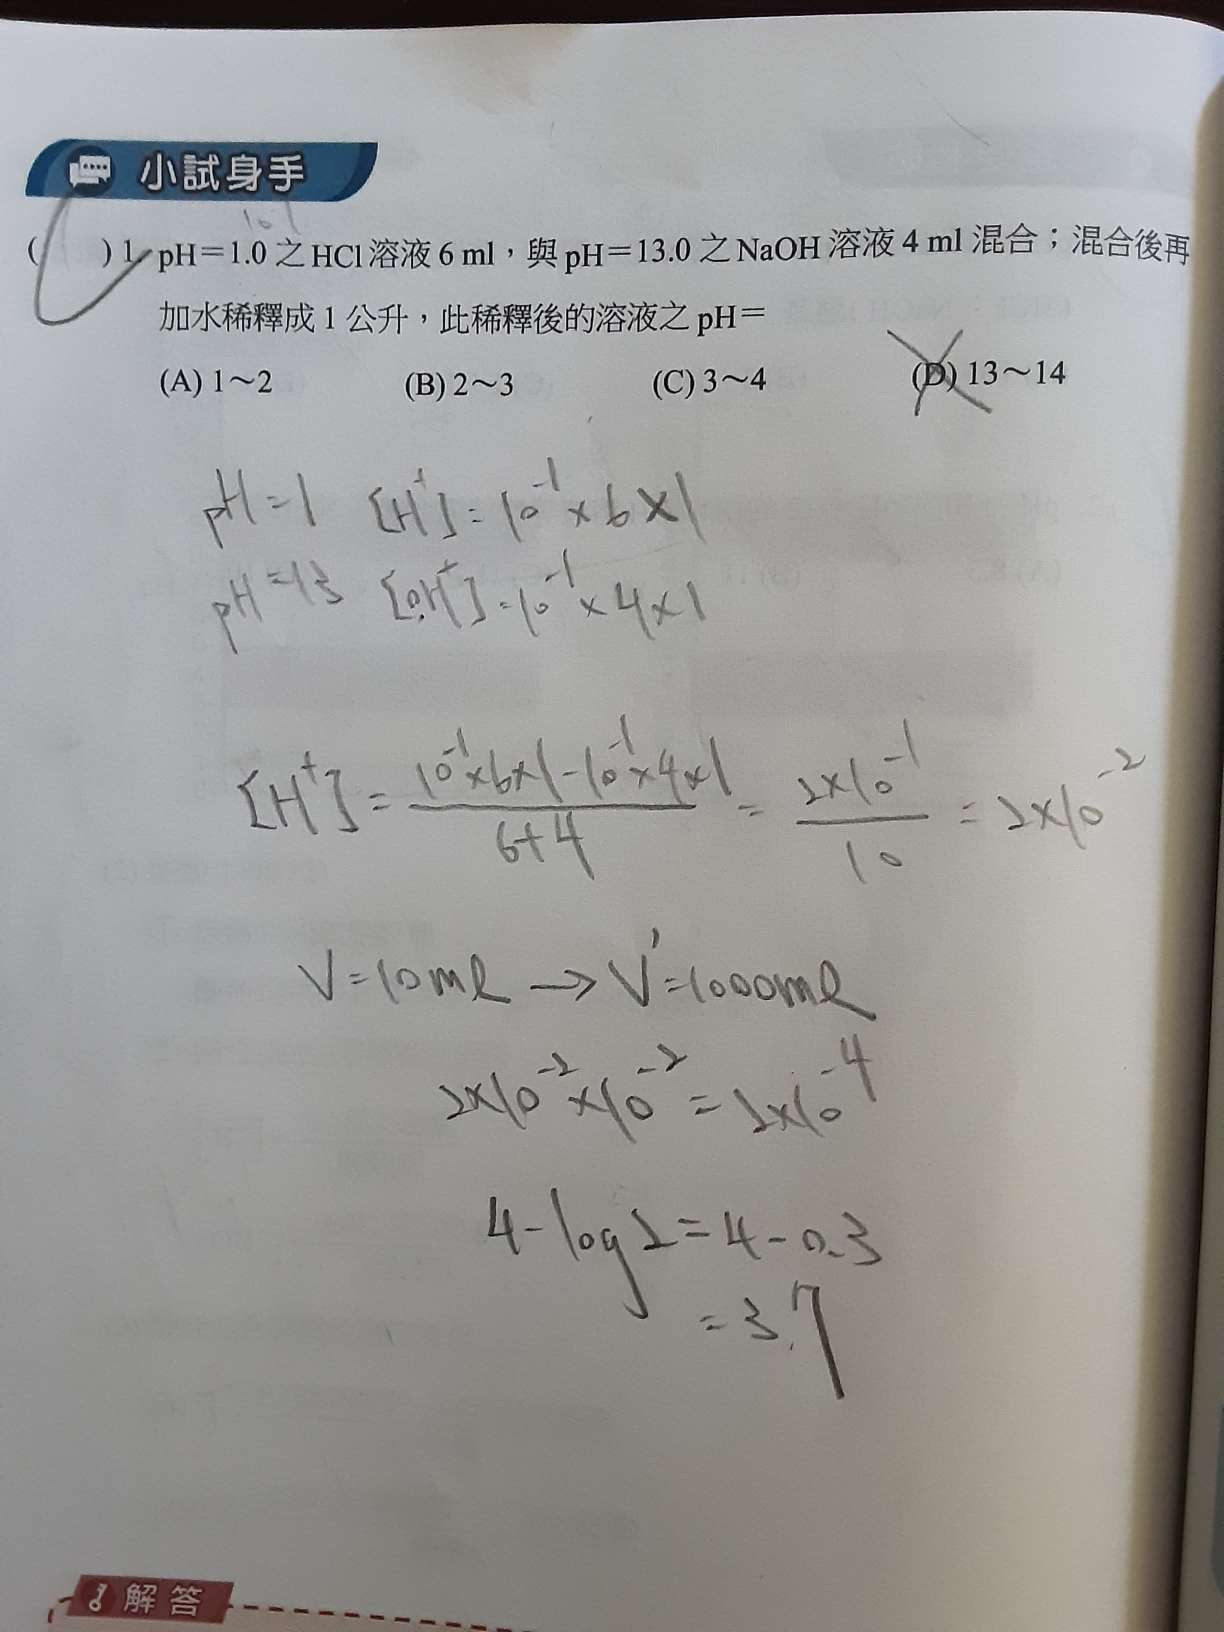 小試身手
10⁻¹
(C) 1. pH＝1.0 之 HCl 溶液 6 ml，與 pH＝13.0 之 NaOH 溶液 4 ml 混合；混合後再
加水稀釋成 1 公升，此稀釋後的溶液之 pH＝
(A) 1～2 (B) 2～3 (C) 3～4 (D) 13～14
pH=1 [H⁺]=10⁻¹×6×1
pH=13 [OH⁺]=10⁻¹×4×1
[H⁺] = (10⁻¹×6×1-10⁻¹×4×1)/(6+4) = (2×10⁻¹)/10 = 2×10⁻²
V=10ml → V'=1000ml
2×10⁻²×10⁻² = 2×10⁻⁴
4-log2=4-0.3
=3.7
解答